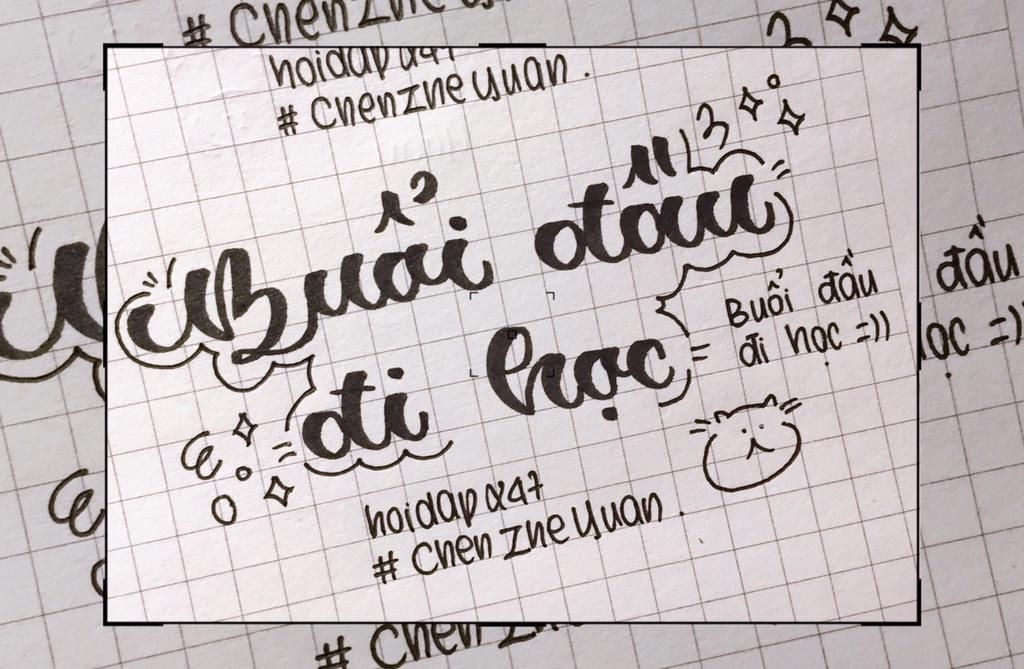 # Chen Zhe Yuan
hoidap 247
# Chen Zhe Yuan .
Buổi đầu
đi học
Buổi đầu
đi học =))
đầu
học =))
hoidap 247
# Chen Zhe Yuan .
# Chen Zhe